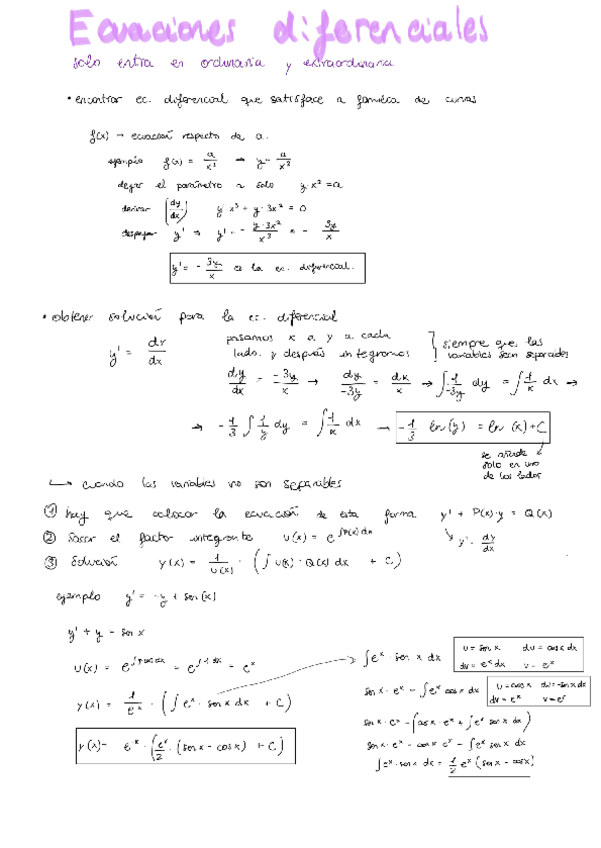 Ecuaciones diferenciales
solo entra en ordinaria y extraordinaria
• encontrar ec. diferencial que satisface a familia de curvas
f(x) → ecuación respecto de a.
ejemplo f(x) = a/x³ → y = a/x²
dejar el parámetro a solo y x² = a
derivar (dy/dx) y' x³ + y · 3x² = 0
despejar y' → y' = - y·3x²/x³ = - 3y/x
y' = - 3y/x es la ec. diferencial.
• obtener solución para la ec. diferencial
y' = dy/dx
pasamos x a y a cada lado. y después integramos
siempre que las variables sean separadas
dy/dx = -3y/x → dy/-3y = dx/x → ∫ 1/-3y dy = ∫ 1/x dx →
→ - 1/3 ∫ 1/y dy = ∫ 1/x dx → - 1/3 ln(y) = ln(x) + C
se añade solo en uno de los lados
↳ cuando las variables no son separables
① hay que colocar la ecuación de esta forma y' + P(x)·y = Q(x)
y' = dy/dx
② Sacar el factor integrante u(x) = e^∫P(x) dx
③ Solución y(x) = 1/u(x) · (∫ u(x) · Q(x) dx + C)
ejemplo y' = -y + sen(x)
y' + y = sen x
u(x) = e^∫P(x) dx = e^∫1 dx = e^x
y(x) = 1/e^x · (∫ e^x · sen x dx + C)
y(x) = e^x · (e^x/2 · (sen x - cos x) + C)
∫ e^x · sen x dx
u = sen x du = cos x dx
dv = e^x dx v = e^x
sen x · e^x - ∫ e^x cos x dx
u = cos x du = -sen x dx
dv = e^x v = e^x
sen x · e^x - (cos x · e^x + ∫ e^x sen x dx)
sen x · e^x - cos x e^x - ∫ e^x sen x dx
∫ e^x · sen x dx = 1/2 e^x (sen x - cos x)